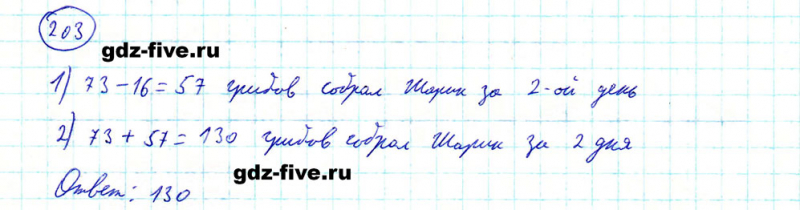 203
gdz-five.ru
1) 73 - 16 = 57 грибов собрал Шарик за 2-ой день
2) 73 + 57 = 130 грибов собрал Шарик за 2 дня
gdz-five.ru
Ответ: 130